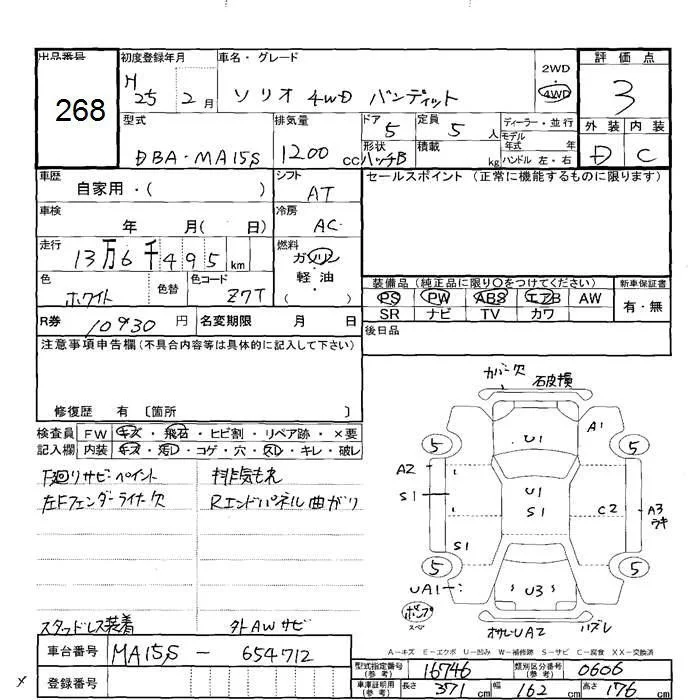 出品番号
268
初度登録年月
H 25 2月
車名・グレード
ソリオ 4WD バンディット
2WD
4WD
評価点
3
外装 内装
D C
型式
DBA・MA15S
排気量
1200 cc
ドア 5
形状 ハッチB
定員 5 人
積載 kg
ディーラー・並行
モデル年式 年
ハンドル 左・右
車歴
自家用・( )
シフト
AT
車検
年 月( 日)
冷房
AC
走行
13万6千495 km
燃料
ガソリン
軽油
( )
色
ホワイト
色替
色コード
Z7T
セールスポイント (正常に機能するものに限ります)
装備品 (純正品に限り○をつけてください)
PS PW ABS エアB AW
SR ナビ TV カワ
新車保証書
有・無
R券 10930 円
名変期限 月 日
後日品
注意事項申告欄(不具合内容等は具体的に記入して下さい)
修復歴 有 〔箇所 〕
検査員記入欄
FW キズ・飛石・ヒビ割・リペア跡・×要
内装 キズ・汚レ・コゲ・穴・スレ・キレ・破レ
下廻りサビ・ペイント
排気もれ
左Fフェンダーライナー欠
Rエンドパネル曲がり
スタッドレス装着
外AWサビ
カバー欠
石皮損
U1
A1
5
5
A2
S1
U1
S1
C2
A3
ラキ
S1
5
5
UA1
U3
ポンプ
スペア
オサレUA2
ハズレ
A-キズ E-エクボ U-凹み W-補修跡 S-サビ C-腐食 XX-交換済
車台番号
MA15S - 654712
登録番号
型式指定番号(参考)
16746
類別区分番号(参考)
0606
車庫証明用(参考)
長さ 371 cm
幅 162 cm
高さ 176 cm
x